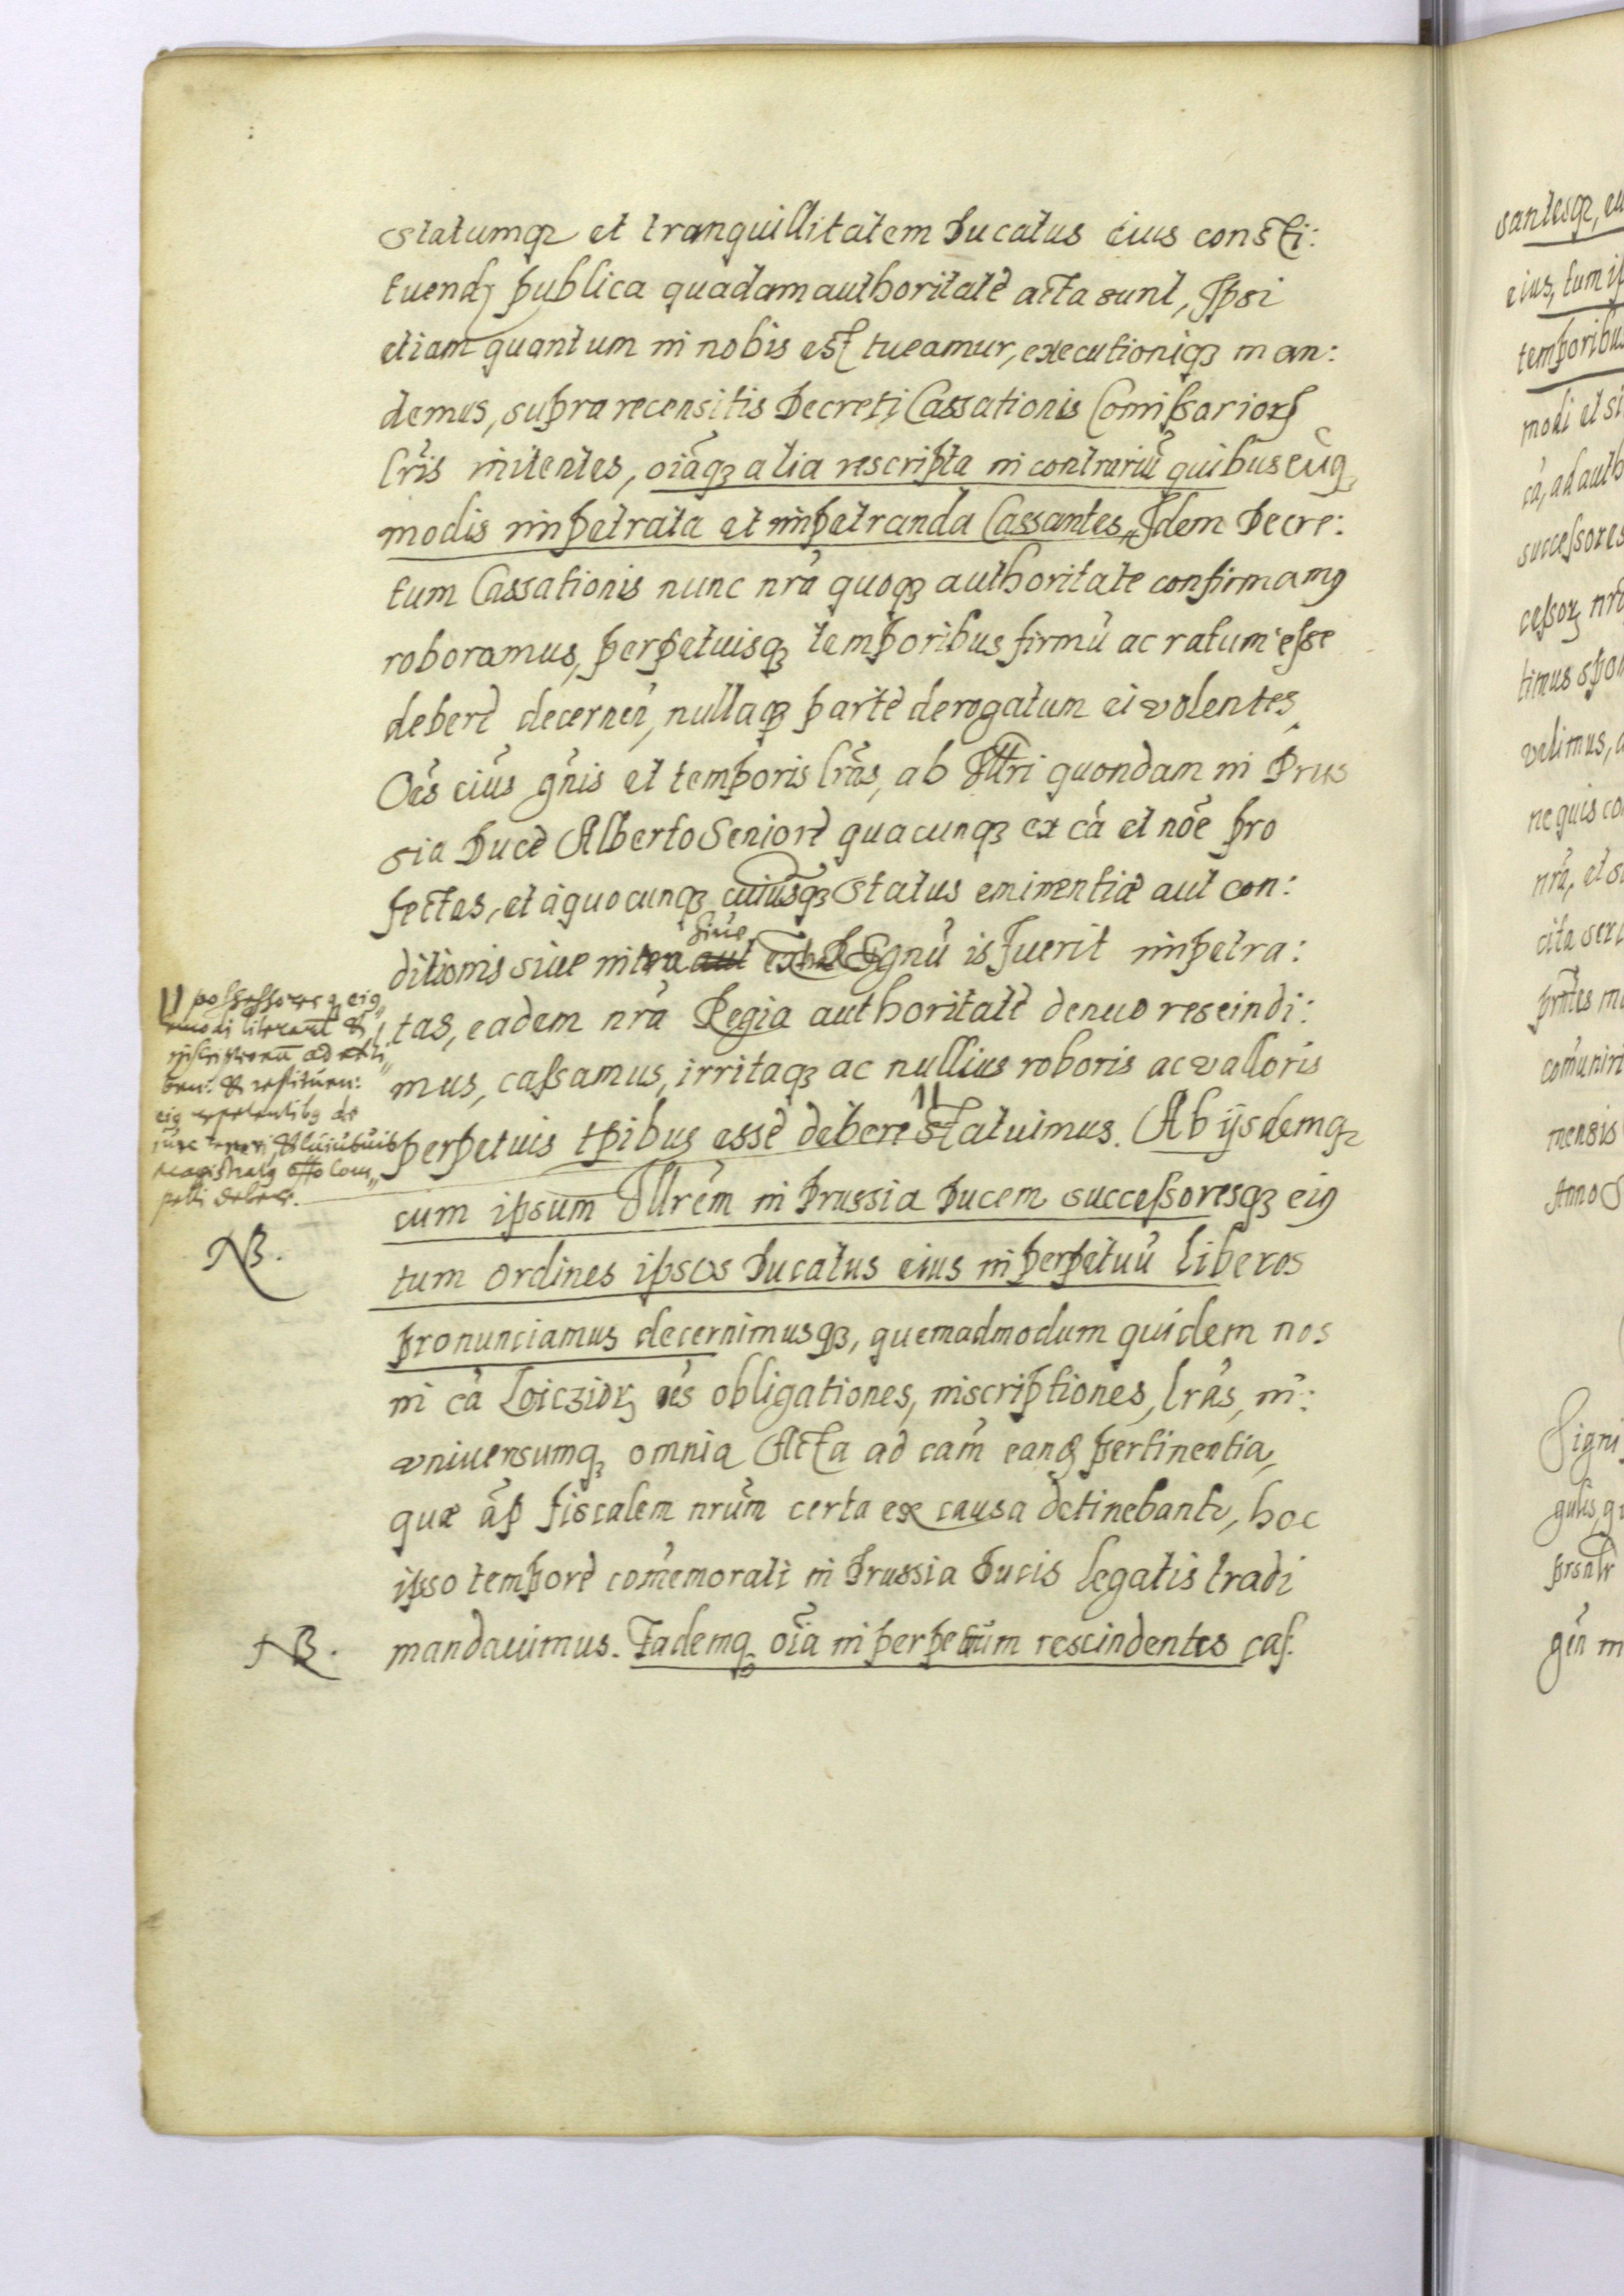 statumq₃ et tranquillitatem Ducatus eius consti:
tuend publica quadam authoritatè acta sunt, Ipsi
etiam quantum in nobis est tueamur, executioniq₃ man:
demus, supra recensitis Decreti Cassationis Comißarioꝝ
lr̃is initentes, oiãq₃ alia rescripta in contrariũ quibuscũq₃
modis impetrata et impetranda Cassantes, Idem Decre:
tum Cassationis nunc nrã quoq₃ authoritate confirmamꝰ
roboramus, perpetuisq₃ temporibus firmũ ac ratum eſse
deberè decernẽ, nullaq₃ partè derogatum ei volentes,
Oẽs eiũs gñis et temporis lrãs, ab Illri quondam in Prus
sia Ducè Alberto Seniorè quacunq₃ ex cã et nõe pro
fectas, et à quocunq₃ cuiusq₃ status eminentiæ aut con:
ditionis siue intra aut siue extra Regnũ is fuerit impetra:
tas, eadem nrã Regia authoritatè denuo rescindi:
mus, caſsamus, irritaq₃ ac nullius roboris ac valloris
perpetuis tp̃ibus essè debere || statuimus. Ab ijsdemq₃
cum ipsum Illrẽm in Prussia Ducem succeſsoresq₃ eiꝰ
tum ordines ipsos Ducatus eius in perpetuũ liberos
pronunciamus decernimusq₃, quemadmodum quidem nos
in cã Loiczioꝝ oẽs obligationes, inscriptiones, lrãs, in:
vniuersumq₃ omnia Acta ad cam̃ eand pertinentia,
quæ ãp fiscalem nrũm certa ex causa detinebantr, hoc
ipso temporè com̃emorati in Prussia Ducis legatis tradi
mandauimus. Eademq₃ oĩa in perpetuum rescindentes caſ.
|| poſseſsoresq₃ eiꝰ
modi literarũ &
inscriptionũ ad
& restituen:
eiꝰ repetentibꝰ de
iure teneri, &
Magistratꝰ offo Com
pelli debere.
NB.
NB.
santesq₃, eu
eius, tum ip
temporibus
modi et si
cã, ad auth
succeſsores
ceſsoꝝ nrã
timus spon
velimus, a
ne quis co
nrã, et su
cita ser
prñtes m
comũniri
mensis
Anno S
Signi
gulis, q
prsnbr
gẽn m